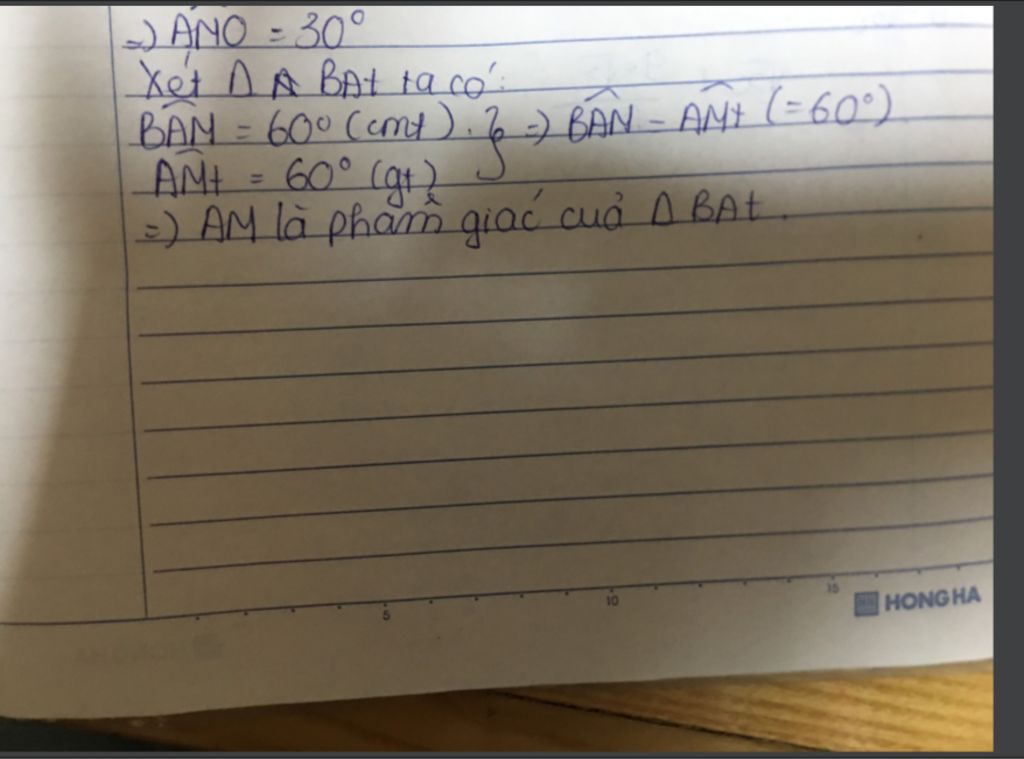 =) ANO = 30°
Xét Δ A BAt ta có:
BAM = 60° (cmt). } =) BAN = AMt (= 60°)
AMt = 60° (gt)
=) AM là phẩm giác cuả Δ BAt.
5 10 15
HONG HA